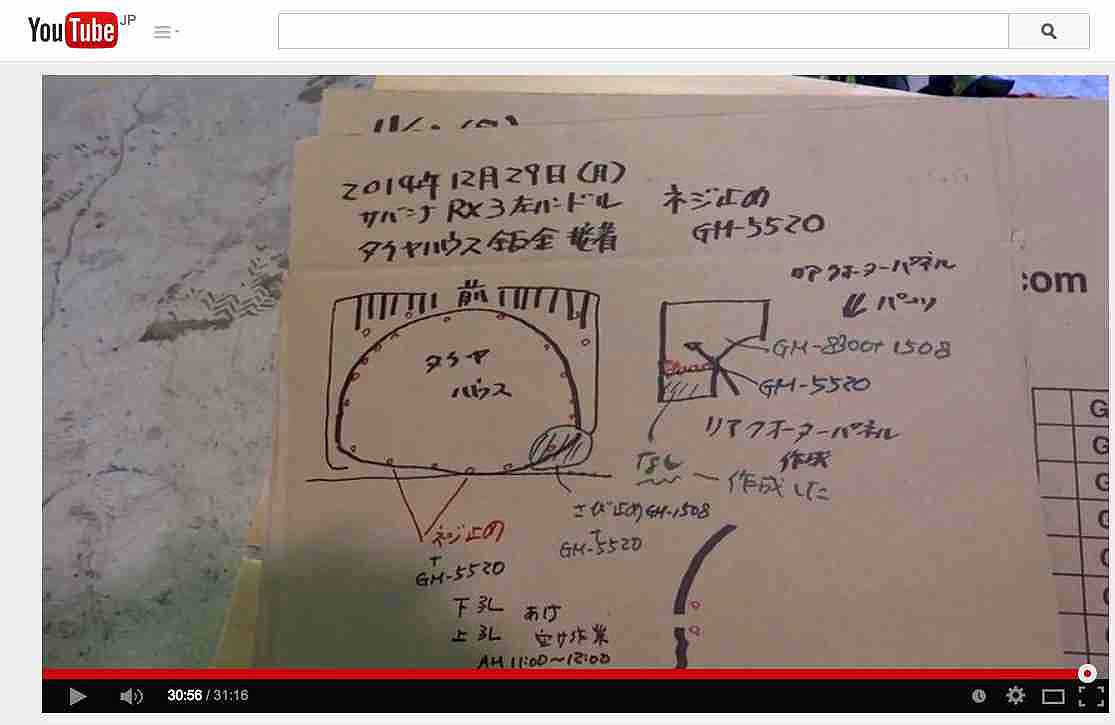 YouTube JP
2014年12月29日(月)
サバンナ RX3 左ハンドル
タイヤハウス 鈑金 接着
ネジ止め
GM-5520
リアクオーターパネル
パーツ
.com
前
タイヤ
ハウス
GM-8300+1508
GM-5520
リアクオーターパネル
作成
なし
作成した
さび止めGM-1508
GM-5520
ネジ止め
GM-5520
下 3L
上 3L
あけ
空け作業
AM 11:00~12:00
G
G
G
G
30:56 / 31:16